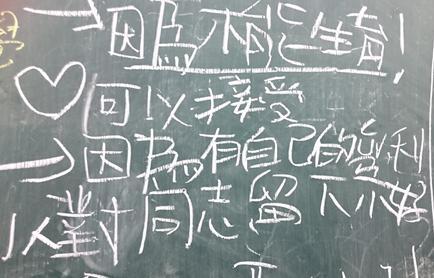 →因為不能生育!
♡可以接受
→因為有自己的權利
人對同志留下不好